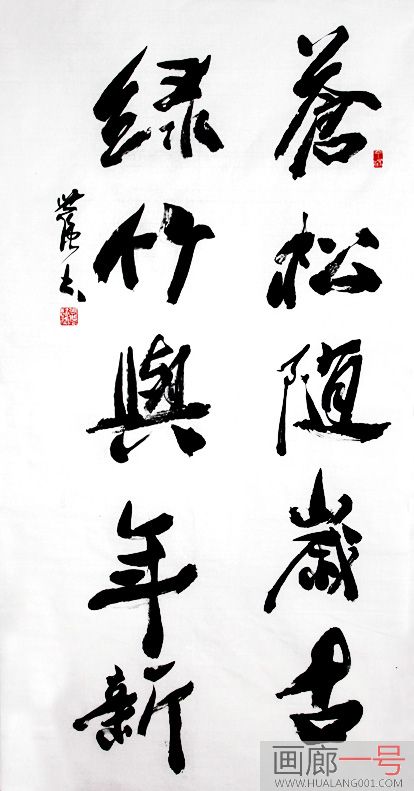 蒼松隨歲古
綠竹與年新
世強書
画廊一号
WWW.HUALANG001.COM